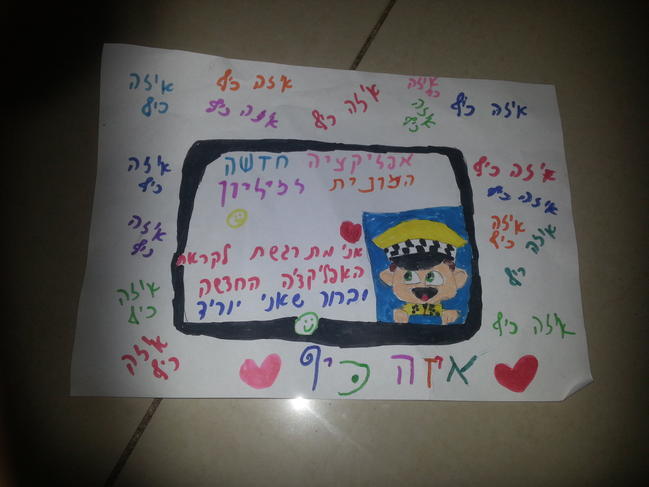 איזה כיף
איזה כיף
איזה כיף
איזה כיף
איזה כיף
איזה כיף
איזה כיף
אפליקציה חדשה
המונית למיליון
אני מתרגשת לקראת
האפליקציה החדשה
וברור שאני יוריד
איזה כיף
איזה כיף
איזה כיף
איזה כיף
איזה כיף
איזה כיף
איזה כיף
איזה כיף
איזה כיף
איזה כיף